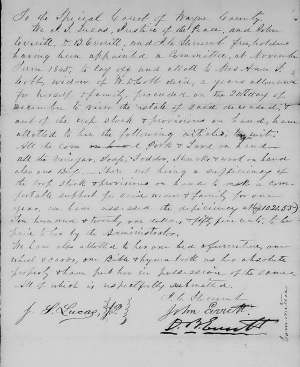 To the Special Court of Wayne County.
We J. S. Lucas, Justice of the Peace, and John
Everitt, D. B. Everitt, and A. G. freeholders
having been appointed a committee, at November
term 1865, to lay off and allott to Mrs Ann S.
widow of W. decd. a years allowance
for herself & family, proceeded on the 20th day of
December to view the estate of said deceased, &
out of the crop stock & provisions on hand, have
allotted to her the following articles, to wit:
All the corn on hand Pork & Lard on hand
all the Soap, Fodder, Shucks & wool on hand
also one Bay. There not being a sufficiency of
the crop stock & provisions on hand to make a com-
fortable support for said widow & family for one
year, we have assessed the deficiency at ($221.55)
Two hundred & twenty one dollars & fifty five cents, to be
paid to her by the Administrator.
We have also allotted to her one bed & furniture, one
wheel & cards, one Bible & hymn book as her absolute
property & have put her in possession of the same.
All of which is respectfully submitted.
A. G.
J. S. Lucas, J.P.
John Everitt
D. B. Everitt
Committee